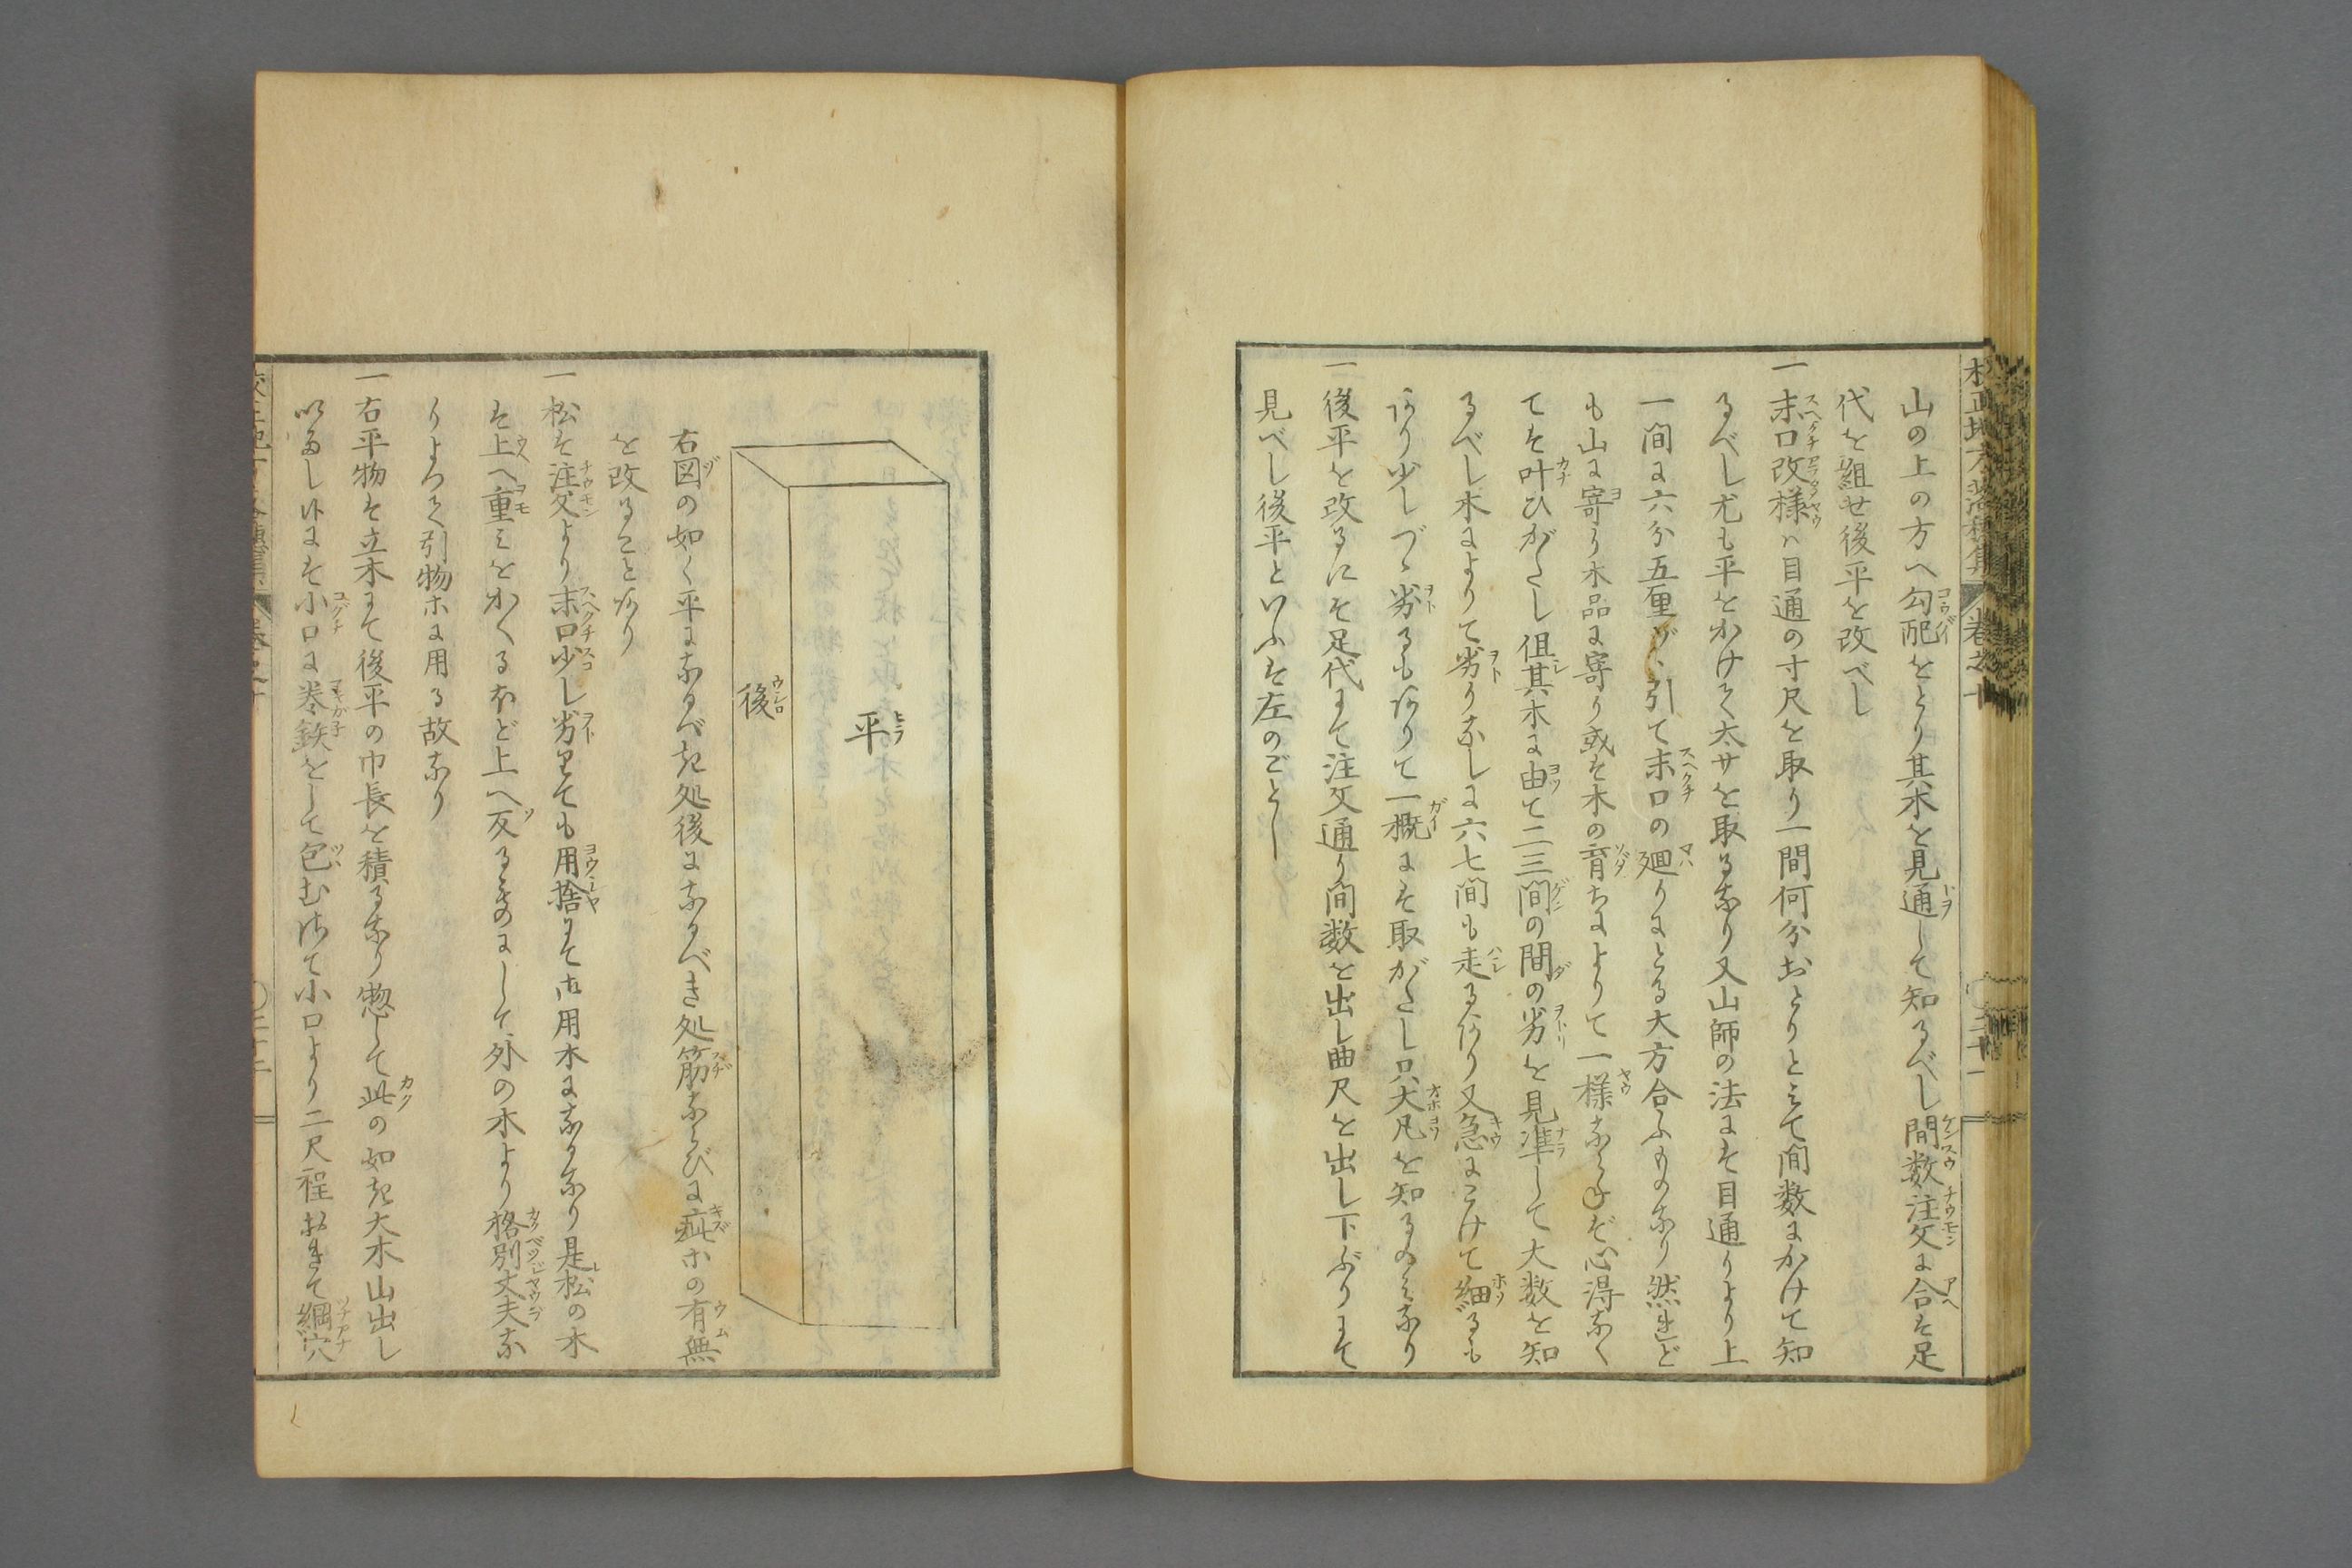 山の上の方へ勾配をとり其木を見通して知るべし間数注文に合は足
代を組せ後平を改べし
一末口改様ハ目通の寸尺を取り一間何分おとりとみて間数にかけて知
るべし尤も平をかけて太サを取るなり又山師の法には目通りより上
一間に六分五厘づゝ引て末口の廻りにとる大方合ふものなり然れど
も山に寄り木品に寄り或は木の育ちによりて一様ならねぞ心得なく
ては叶ひがたし但其木に由て二三間の間の劣を見準して大数を知
るべし木によりて劣りなしに六七間も走るあり又急にこけて細るも
あり少しづゝ劣るもありて一概には取がたし只大凡を知るのみなり
一後平を改るには足代にて注文通り間数を出し曲尺を出し下ぶりにて
見べし後平といふは左のごとし
平
後
右図の如く平になるべき処後になるべき処筋ならびに疵ホの有無
を改ることあり
一松は注文より末口少し劣りても用捨にて御用木になるなり是松の木
は上へ重みをかくるほど上へ反るものにして外の木より格別丈夫な
りよつて引物ホに用る故なり
一右平物は立木にて後平の巾長を積るなり惣して此の如き大木山出し
いたし候には小口に巻鉄をして包む偖て小口より二尺程おきて綱穴